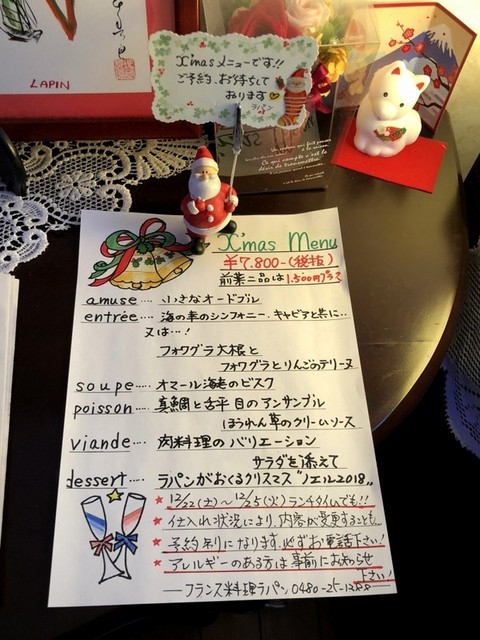 LAPIN
X'masメニューです!!
ご予約、お待ちして
おります♡
ラパン
X'mas Menu
¥7.800-(税抜)
前菜二品は1.500円プラス
amuse‥‥ 小さなオードブル
entrée‥‥ 海の幸のシンフォニー、キャビアと共に‥
又は‥・!
フォワグラ大根と
フォワグラとりんごのテリーヌ
soupe‥‥ オマール海老のビスク
poisson‥‥ 真鯛と舌平目のアンサンブル
ほうれん草のクリームソース
viande‥‥ 肉料理のバリエーション
サラダを添えて
dessert‥‥ ラパンがおくるクリスマス"ノエル2018"
★ 12/22(土)〜12/25(火)ランチタイムでも!!
★ 仕入れ状況により、内容が変更することも‥
★ 予約制になります。必ずお電話下さい!
★ アレルギーのある方は事前にお知らせ
下さい!
―フランス料理ラパン 0480-25-